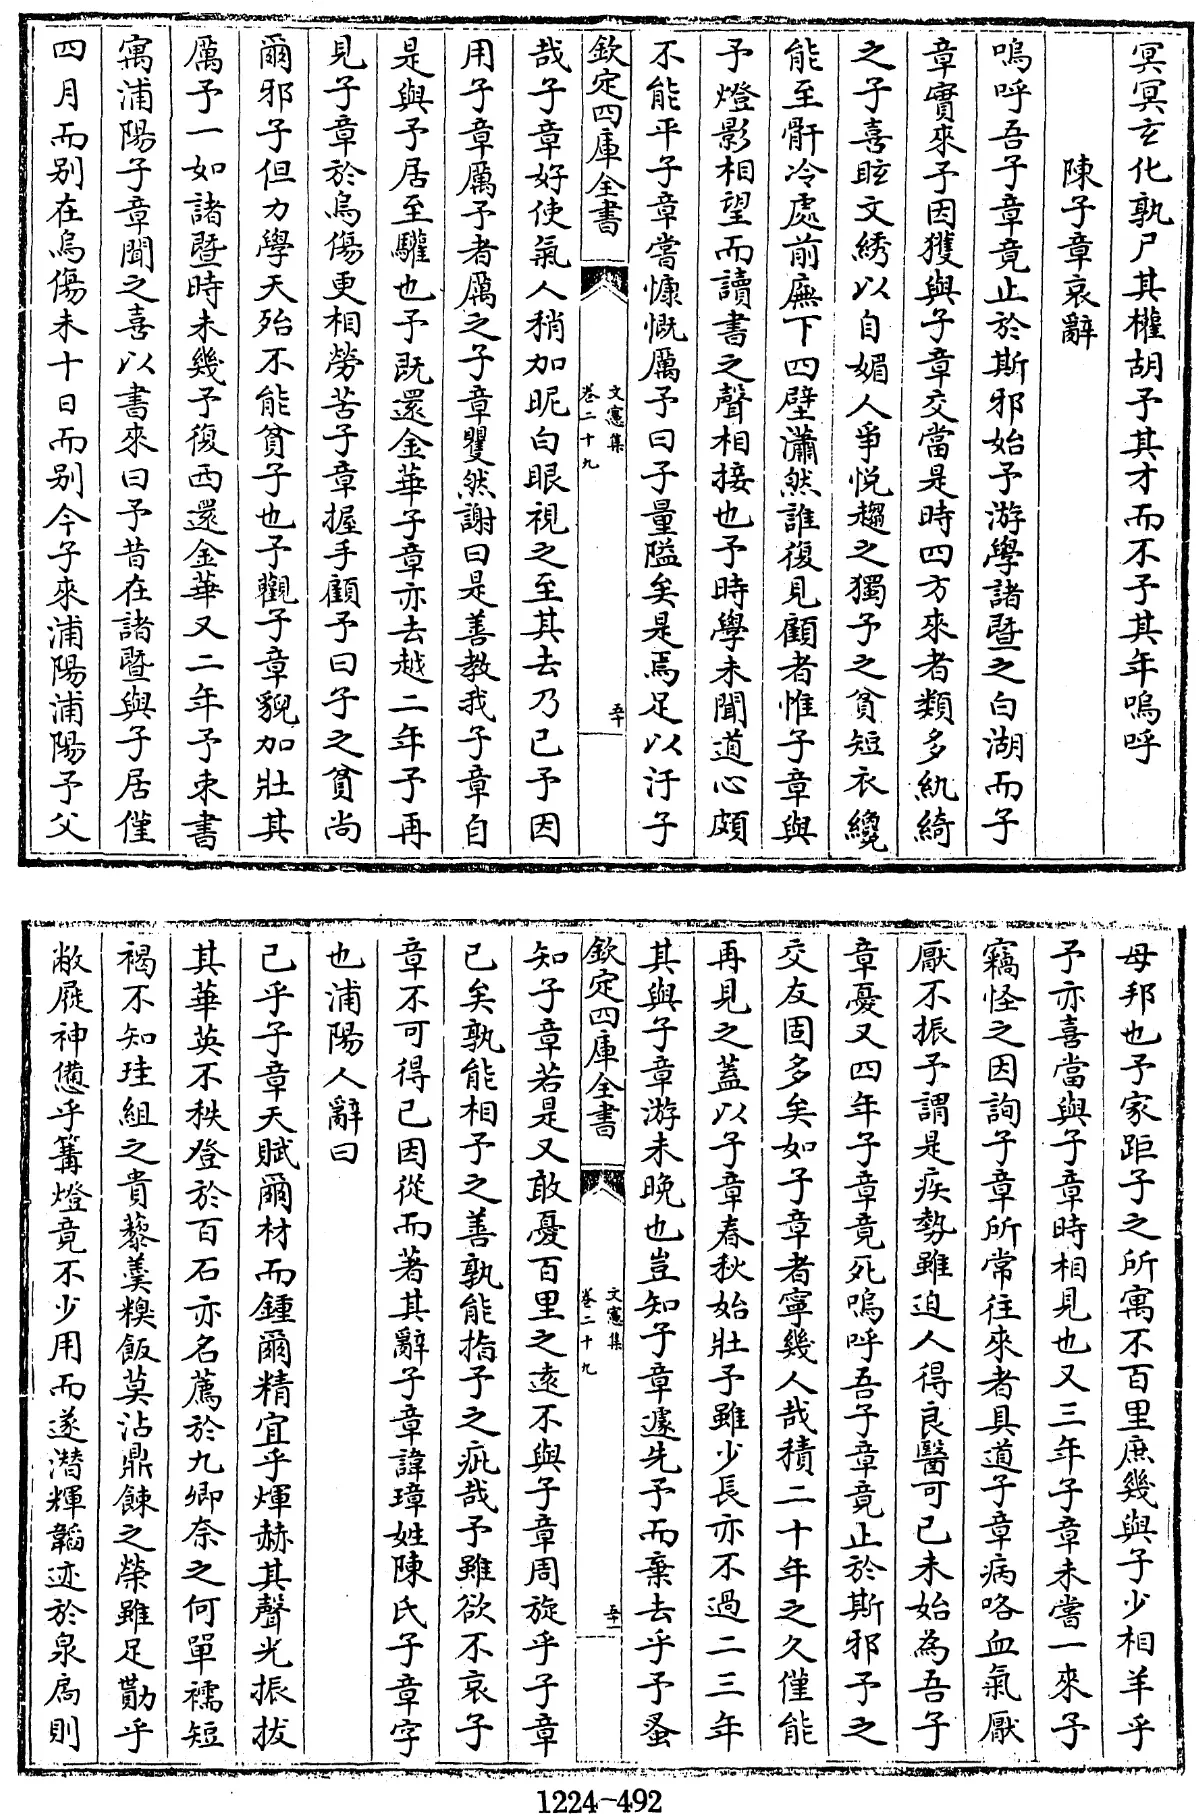 冥冥玄化孰尸其權胡予其才而不予其年嗚呼
陳子章哀辭
嗚呼吾子章竟止於斯邪始予游學諸暨之白湖而子
章實來予因獲與子章交當是時四方來者類多紈綺
之子喜眩文綉以自媚人爭悅趨之獨予之貧短衣纔
能至骭冷處前廡下四壁瀟然誰復見顧者惟子章與
予燈影相望而讀書之聲相接也予時學未聞道心頗
不能平子章嘗慷慨厲予曰子量隘矣是焉足以汙子
欽定四庫全書
文憲集
卷二十九
五十
哉子章好使氣人稍加昵白眼視之至其去乃已予因
用子章厲予者厲之子章瞿然謝曰是善教我子章自
是與予居至驩也予既還金華子章亦去越二年予再
見子章於烏傷更相勞苦子章握手顧予曰子之貧尚
爾邪子但力學天殆不能貧子也予觀子章貌加壯其
厲予一如諸暨時未幾予復西還金華又二年予束書
寓浦陽子章聞之喜以書來曰予昔在諸暨與子居僅
四月而别在烏傷未十日而别今子來浦陽浦陽予父
母邦也予家距子之所寓不百里庶幾與子少相羊乎
予亦喜當與子章時相見也又三年子章未嘗一來予
竊怪之因詢子章所常往來者具道子章病咯血氣厭
厭不振予謂是疾勢雖迫人得良醫可已未始為吾子
章憂又四年子章竟死嗚呼吾子章竟止於斯邪予之
交友固多矣如子章者寧幾人哉積二十年之久僅能
再見之蓋以子章春秋始壯予雖少長亦不過二三年
其與子章游未晚也豈知子章遽先予而棄去乎予蚤
欽定四庫全書
文憲集
卷二十九
五十一
知子章若是又敢憂百里之遠不與子章周旋乎子章
已矣孰能相予之善孰能指予之疵哉予雖欲不哀子
章不可得已因從而著其辭子章諱璋姓陳氏子章字
也浦陽人辭曰
已乎子章天賦爾材而鍾爾精宜乎煇赫其聲光振拔
其華英不秩登於百石亦名薦於九卿奈之何單襦短
褐不知珪組之貴藜羹糗飯莫沾鼎餗之榮雖足勩乎
敝屣神憊乎篝燈竟不少用而遂潛輝韜迹於泉扃則
1224-492